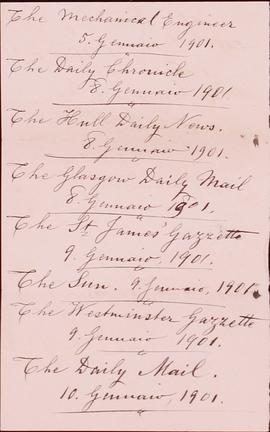 The Mechanical Engineer
5. Gennaio 1901.
The Daily Chronicle
8. Gennaio 1901
The Hull Daily News.
8. Gennaio 1901.
The Glasgow Daily Mail
8. Gennaio 1901.
The St James' Gazzette
9. Gennaio, 1901.
The Sun. 9. Gennaio, 1901.
The Westminster Gazzette
9. Gennaio 1901.
The Daily Mail.
10. Gennaio, 1901.